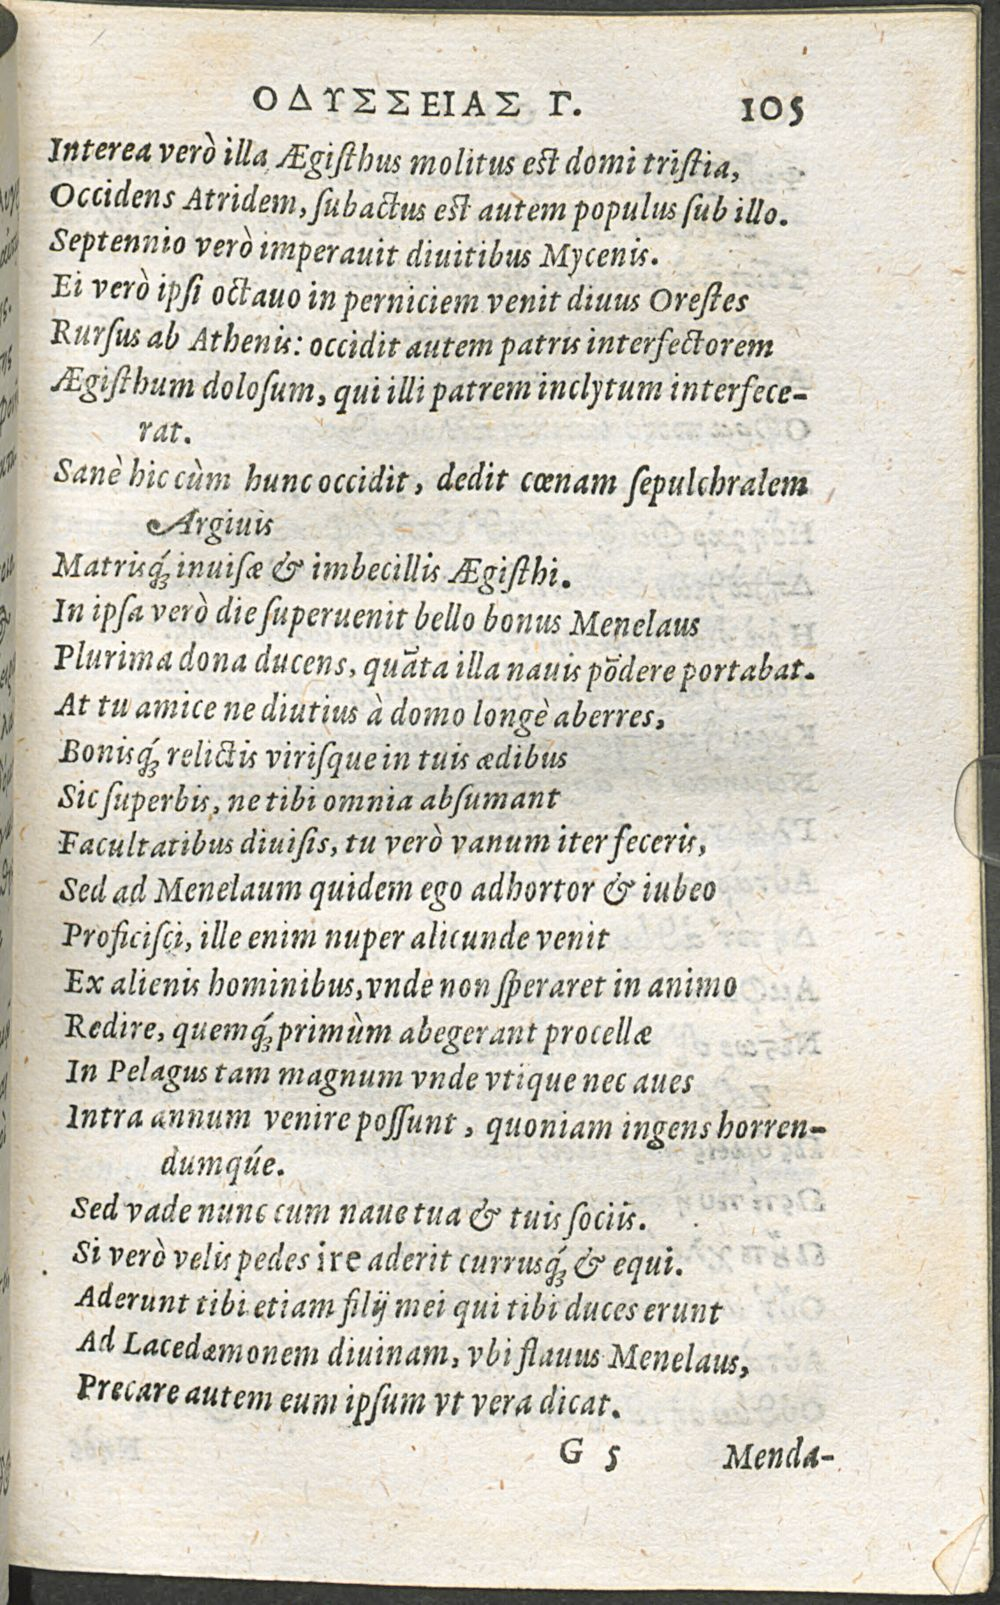 ΟΔΥΣΣΕΙΑΣ Γ. 105
Interea verò illa Ægiſthus molitus eſt domi triſtia,
Occidens Atridem, ſubactus eſt autem populus ſub illo.
Septennio verò imperauit diuitibus Mycenis.
Ei verò ipſi octauo in perniciem venit diuus Oreſtes
Rurſus ab Athenis: occidit autem patris interfectorem
Ægiſthum doloſum, qui illi patrem inclytum interfece-
rat.
Sanè hic cùm hunc occidit, dedit cœnam ſepulchralem
Argiuis
Matrisq́ꝫ inuiſæ & imbecillis Ægiſthi.
In ipſa verò die ſuperuenit bello bonus Menelaus
Plurima dona ducens, quāta illa nauis pōdere portabat.
At tu amice ne diutius à domo longè aberres,
Bonisq́ꝫ relictis viriſque in tuis ædibus
Sic ſuperbis, ne tibi omnia abſumant
Facultatibus diuiſis, tu verò vanum iter feceris,
Sed ad Menelaum quidem ego adhortor & iubeo
Proficiſci, ille enim nuper alicunde venit
Ex alienis hominibus, vnde non ſperaret in animo
Redire, quemq́ꝫ primùm abegerant procellæ
In Pelagus tam magnum vnde vtique nec aues
Intra annum venire poſſunt, quoniam ingens horren-
dumqúe.
Sed vade nunc cum naue tua & tuis ſociis.
Si verò velis pedes ire aderit currusq́ꝫ & equi.
Aderunt tibi etiam filij mei qui tibi duces erunt
Ad Lacedæmonem diuinam, vbi flauus Menelaus,
Precare autem eum ipſum vt vera dicat.
G 5 Menda-